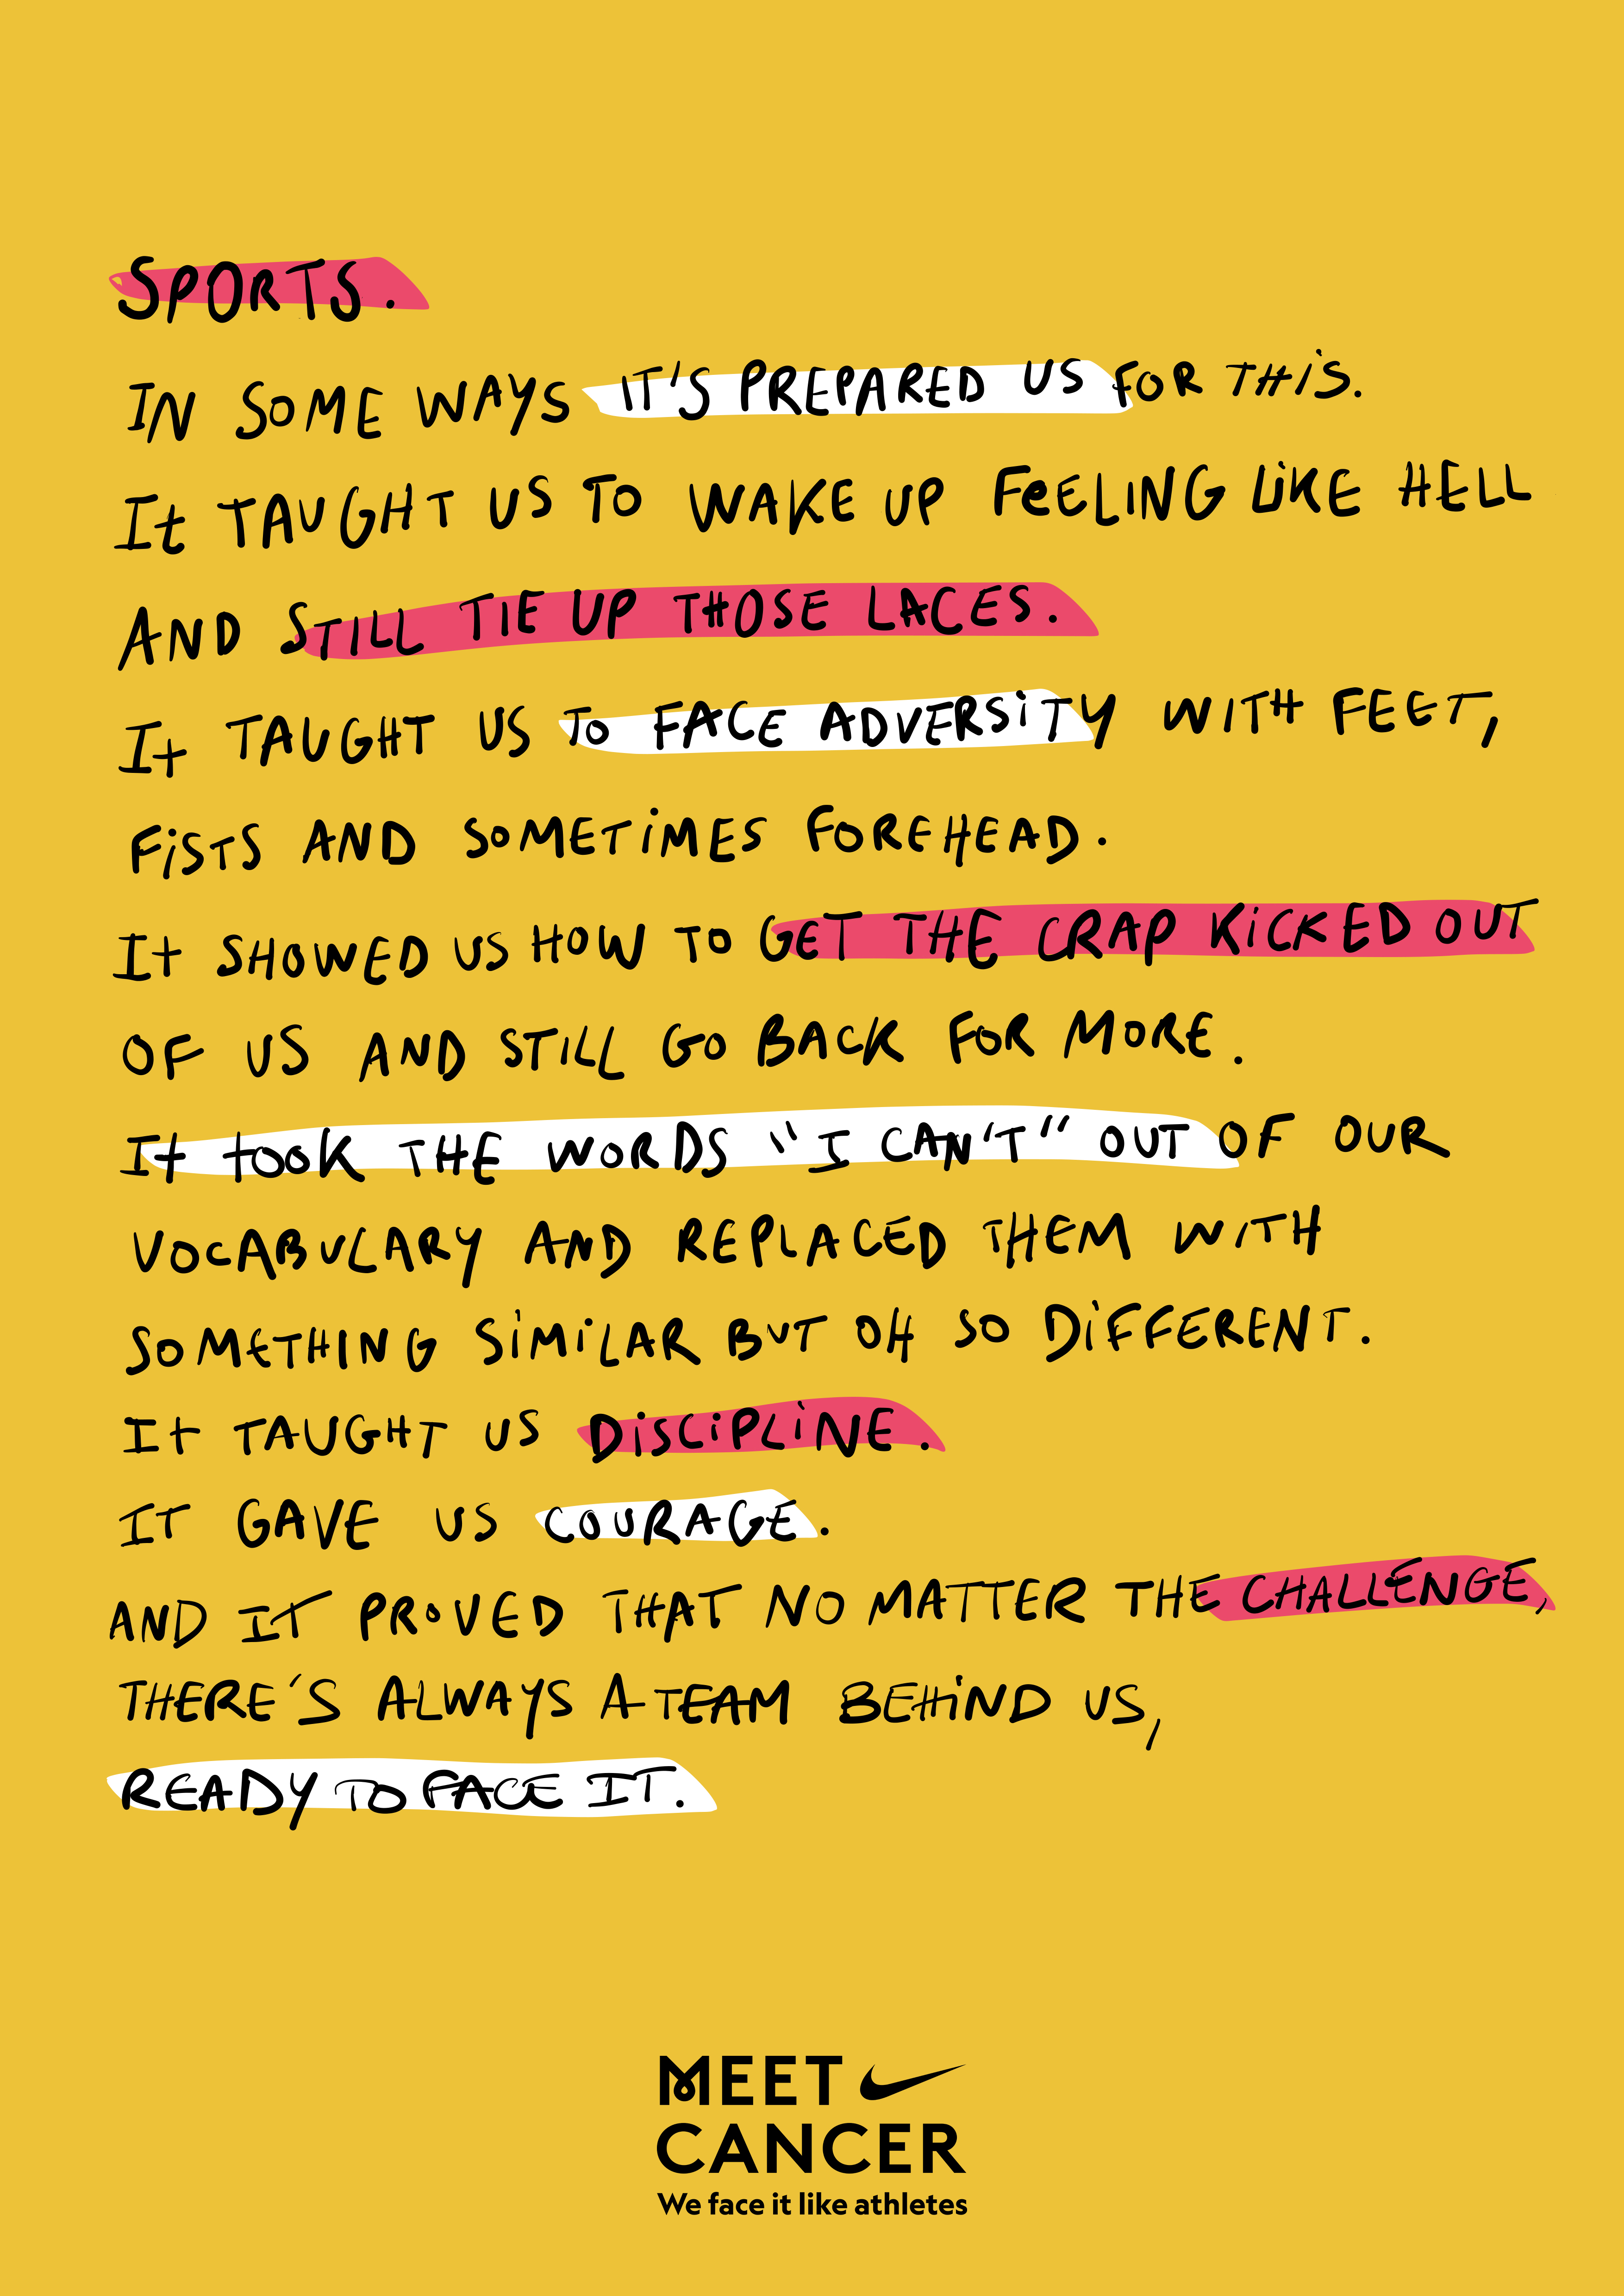 SPORTS.
IN SOME WAYS IT'S PREPARED US FOR THIS.
It TAUGHT US TO WAKE UP FEELING LIKE HELL
AND STILL TIE UP THOSE LACES.
It TAUGHT US TO FACE ADVERSITY WITH FEET,
FISTS AND SOMETIMES FOREHEAD.
It SHOWED US HOW TO GET THE CRAP KICKED OUT
OF US AND STILL GO BACK FOR MORE.
It tOOK THE WORDS "I CAN'T" OUT OF OUR
VOCABULARY AND REPLACED THEM WITH
SOMETHING SIMILAR BUT OH SO DIFFERENT.
It TAUGHT US DISCIPLINE.
IT GAVE US COURAGE.
AND IT PROVED THAT NO MATTER THE CHALLENGE,
THERE'S ALWAYS A TEAM BEHIND US,
READY TO FACE IT.
MEET
CANCER
We face it like athletes